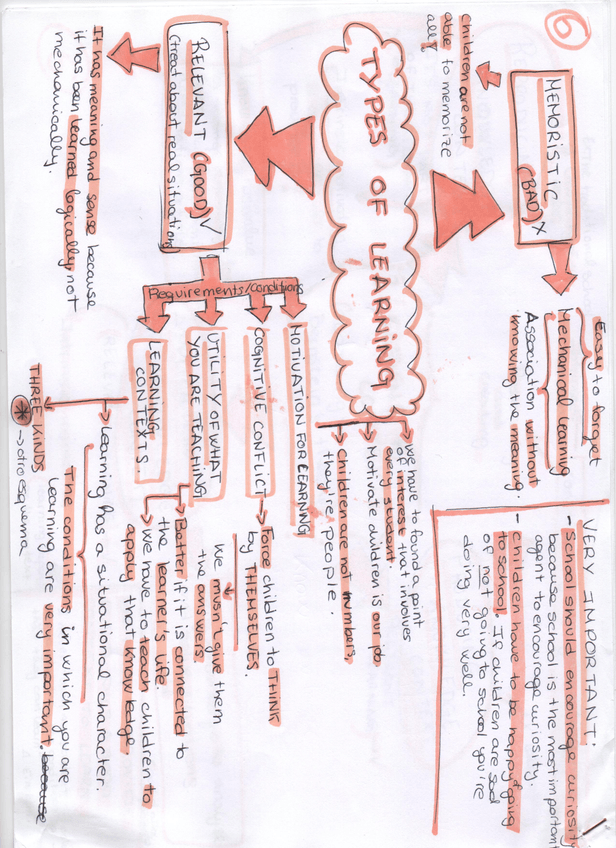 6
TYPES OF LEARNING
MEMORISTIC
(BAD) X
children are not
able to memorize
all!
Easy to target
Mechanical learning
Association without
knowing the meaning.
VERY IMPORTANT:
- School should encourage curiosity
because school is the most important
agent to encourage curiosity.
- Children have to be happy going
to school. If children are sad
of not going to school you're
doing very well.
RELEVANT (GOOD) V
(tread about real situation)
It has meaning and sense because
it has been learned logically, not
mechanically.
Requirements/Conditions
MOTIVATION FOR LEARNING
We have to found a point
of interest that involves
every student.
Motivate children is our job.
Children are not numbers,
they're people.
COGNITIVE CONFLICT
Force children to THINK
by THEMSELVES.
We musn't give them
the answers.
UTILITY OF WHAT
YOU ARE TEACHING
Better if it is connected to
the learner's life.
We have to teach children to
apply that knowledge
LEARNING
CONTEXTS.
Learning has a situational character.
The conditions in which you are
learning are very important. because
THREE KINDS
* → otro esquema